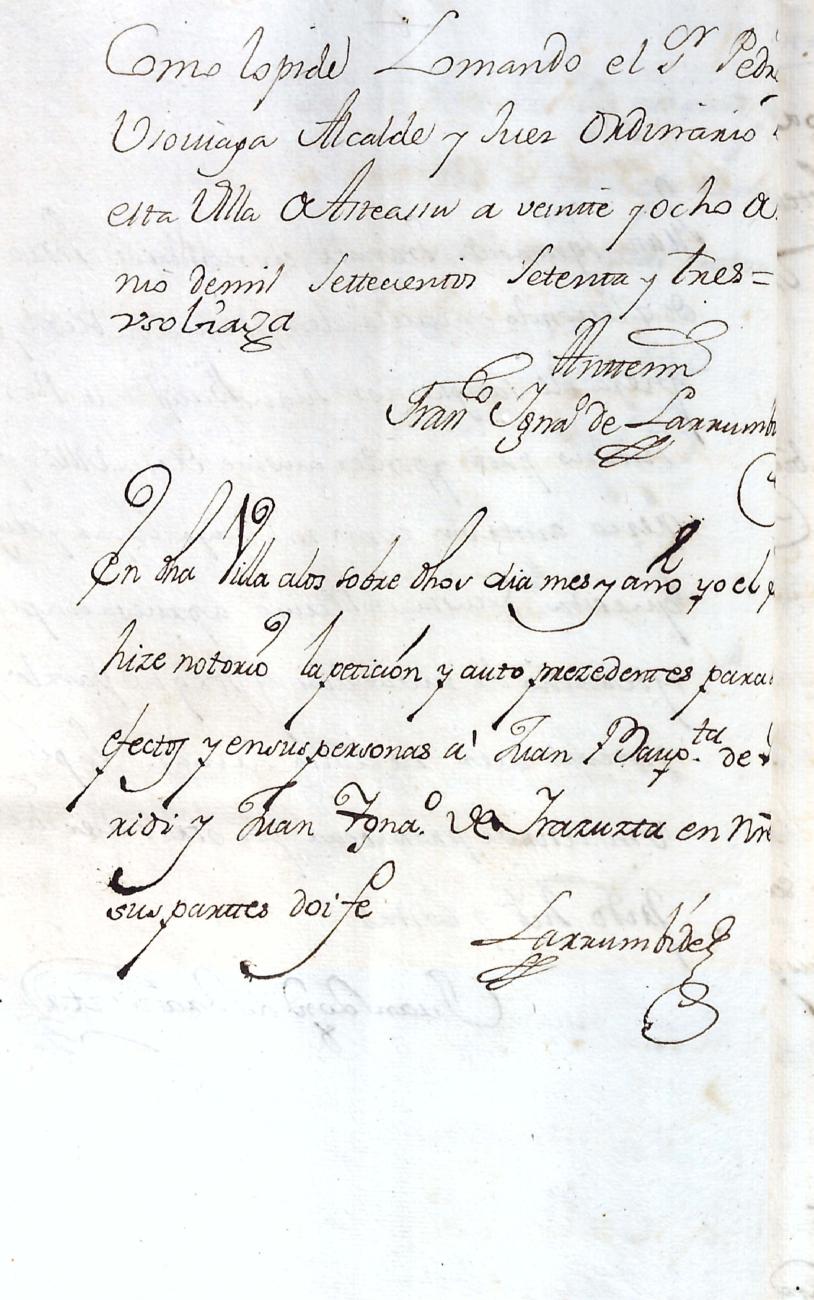 Como lo pide Lo mando el Sr Pedr
Usoviaga Alcalde y Juez Ordinario
esta Villa Asteasu a veintte y ocho
nio de mil settecientos setenta y tres=
vsobiaga
Antte mi
Franco Ignao de Larrumbi
En dha Villa a los sobre dhos dia mes y año yo el
hize notorio la petición y auto prezedentes para
efectos y en sus personas a Juan Baupta de
ridi y Juan Ignao de Irazuzta en Nre
sus parttes doi fe
Larrumbide